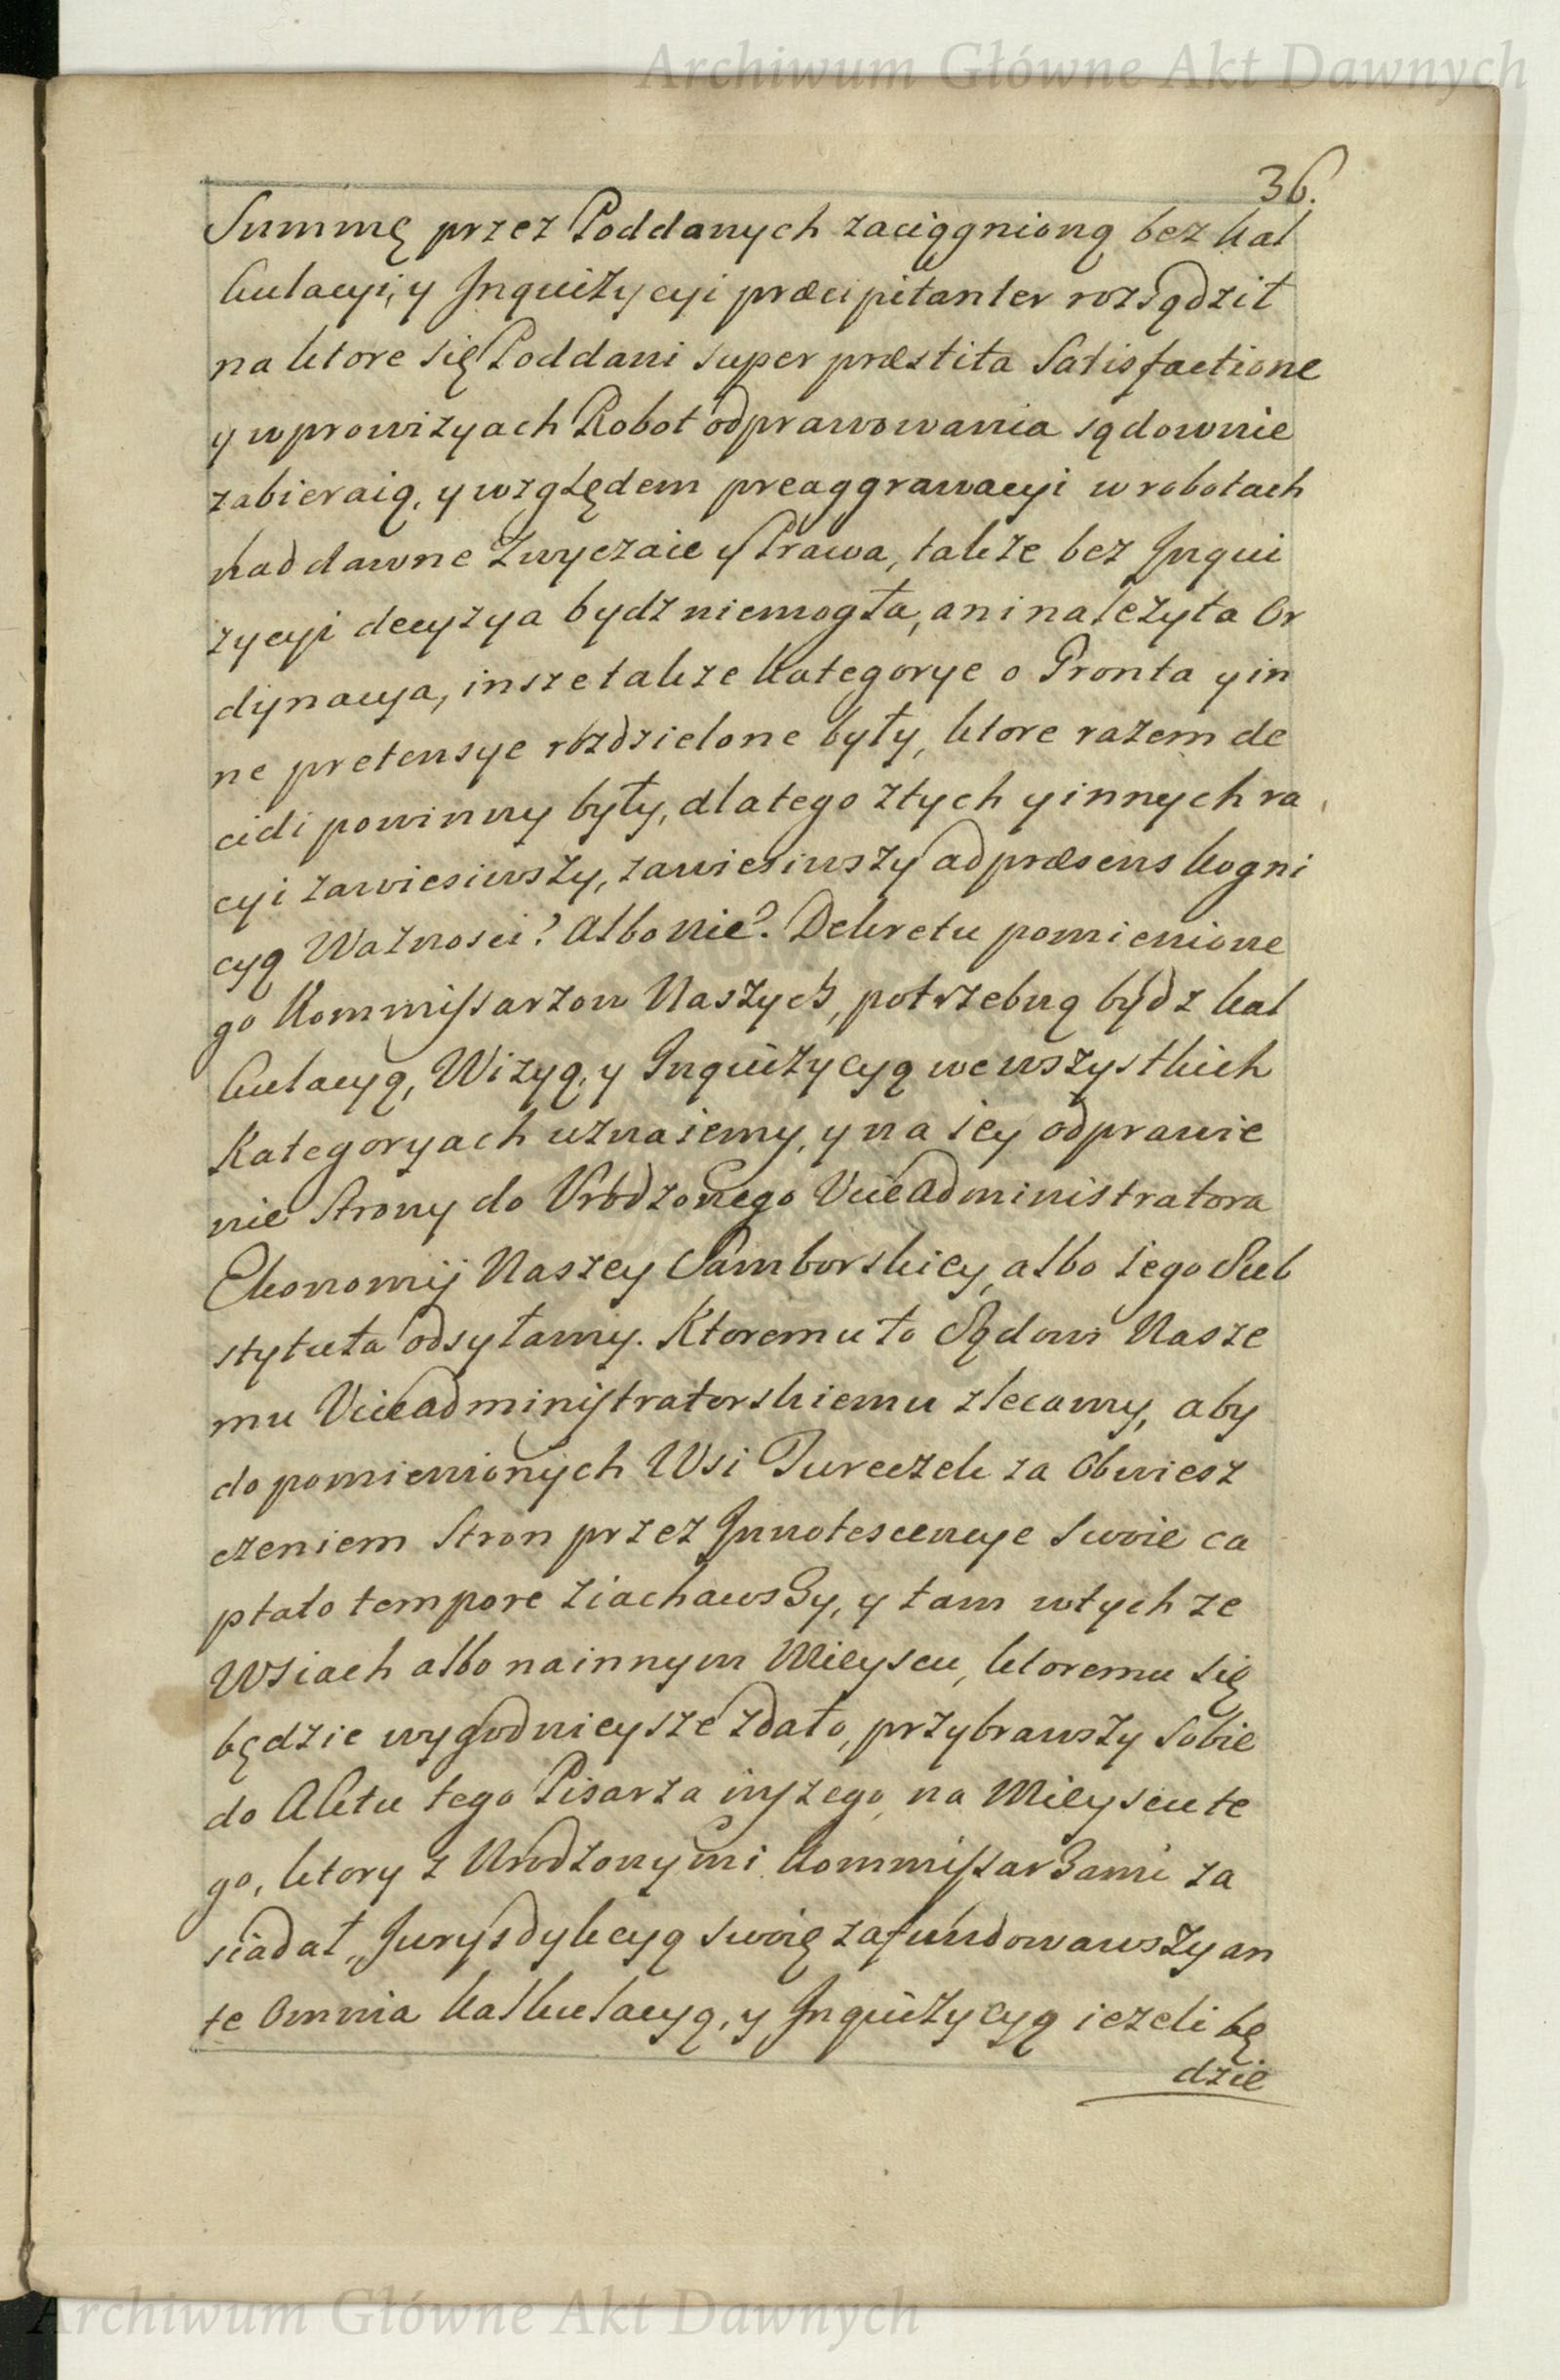 Archiwum Główne Akt Dawnych
36.
Summę przez Poddanych zaciągnioną bez kal
kulacyi, y Inquizycyi præcipitanter rozsądził
na ktore się Poddani super præstita Satisfactione
y w prowizyach Robot odprawowania sądownie
zabieraią, y względem preaggrawacyi w robotach
nad dawne Zwyczaie y Prawa, także bez Inqui
zycyi decyzya bydz niemogła, ani należyta Or
dynacya, insze także kategorye o Gronta y in
ne pretensye rozdzielone były, ktore razem de
cidi powinny były, dlatego z tych y innych ra
cyi zawiesiwszy, zawiesiwszy ad præsens kogni
cyą Ważnosci? Albo nie? Dekretu pomienione
go Kommissarzow Naszych, potrzebną bydz kal
kulacyą, Wizyą, y Inquizycyą we wszystkich
Kategoryach uznaiemy, y na iey odprawie
nie Strony do Urodzonego ViceAdministratora
Ekonomij Naszey Samborskiey, albo iego Sub
stytuta odsyłamy. Ktoremu to Sądowi Nasze
mu ViceAdministratorskiemu zlecamy, aby
do pomienionych Wsi Tureczek za Obwiesz
czeniem Stron przez Innotescencye Swoie ca
ptato tempore ziachawszy, y tam w tych ze
Wsiach albo na innym Mieyscu, ktoremu się
będzie wygodnieysze zdało, przybrawszy Sobie
do Aktu tego Pisarza inszego, na Mieyscu te
go, ktory z Urodzonymi Kommissarzami za
siadał, Jurysdykcyą swoię zafundowawszy an
te Omnia kalkulacyą, y Inquizycyą ieżeli bę
dzie
Archiwum Główne Akt Dawnych